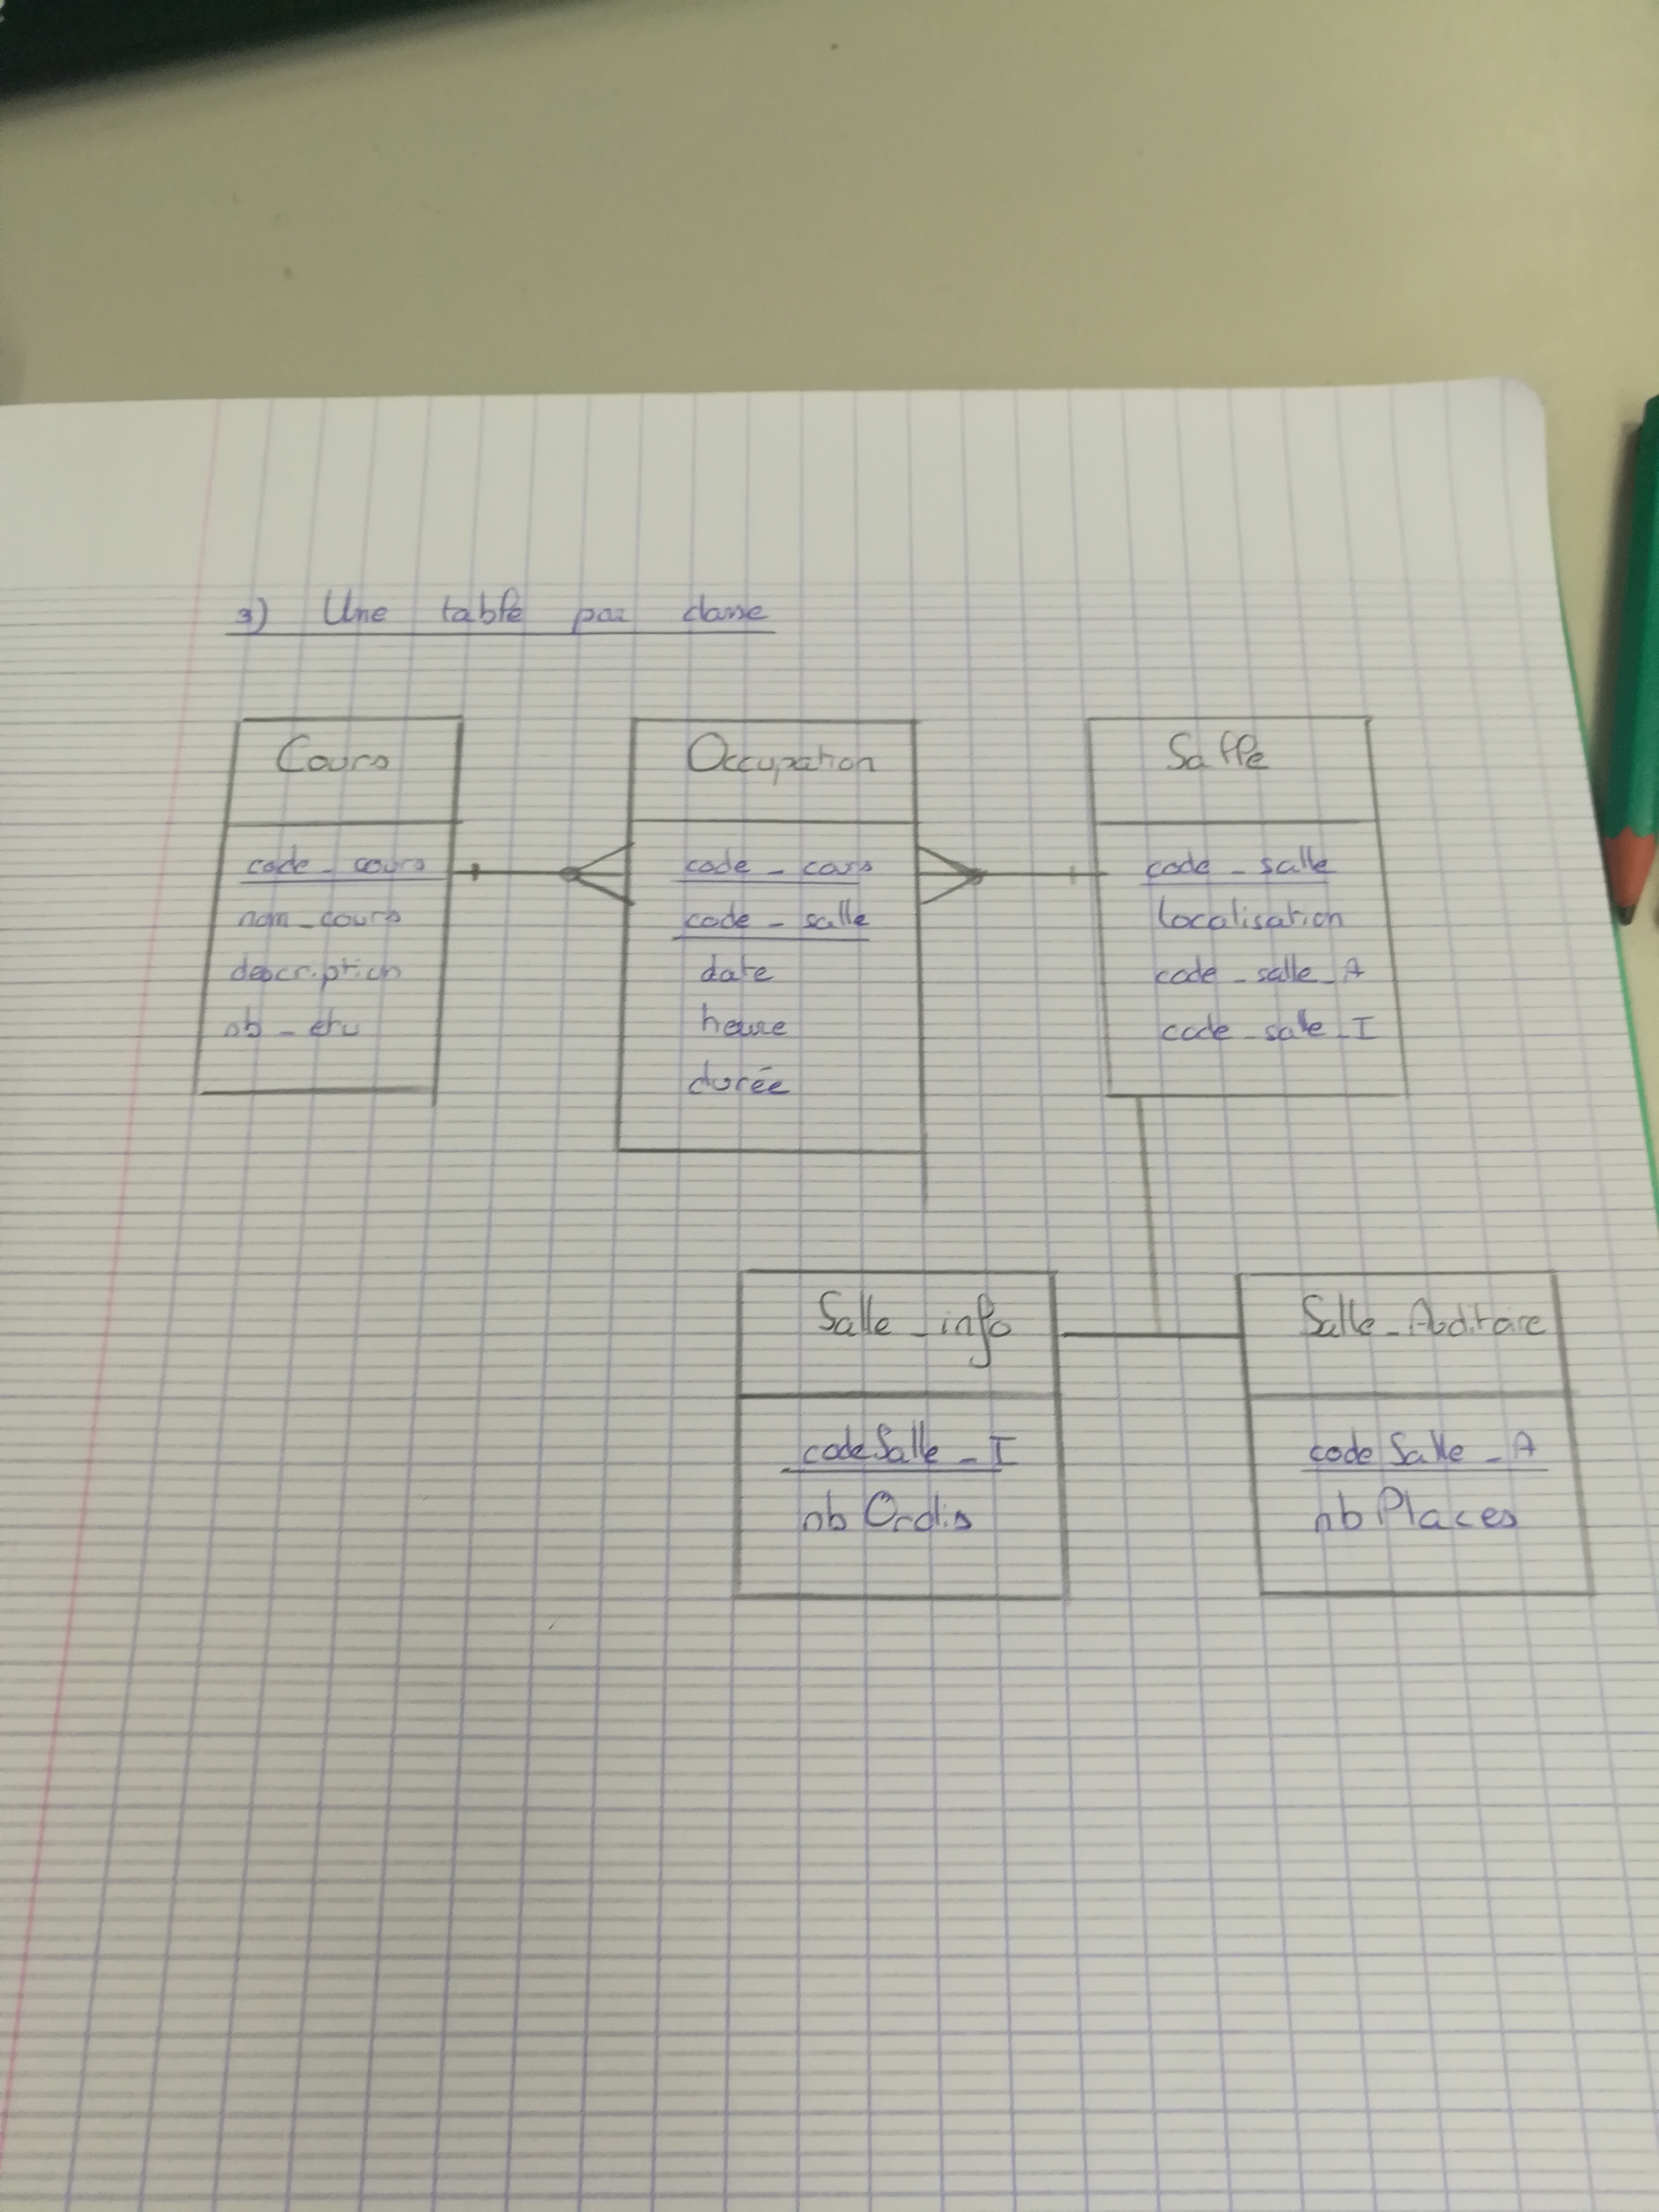 3) Une table par classe
Cours
code_cours
nom_cours
description
nb_etu
Occupation
code_cours
code_salle
date
heure
durée
Salle
code_salle
localisation
code_salle_A
code_salle_I
Salle_info
codeSalle_I
nbOrdis
Salle_Auditoire
codeSalle_A
nbPlaces